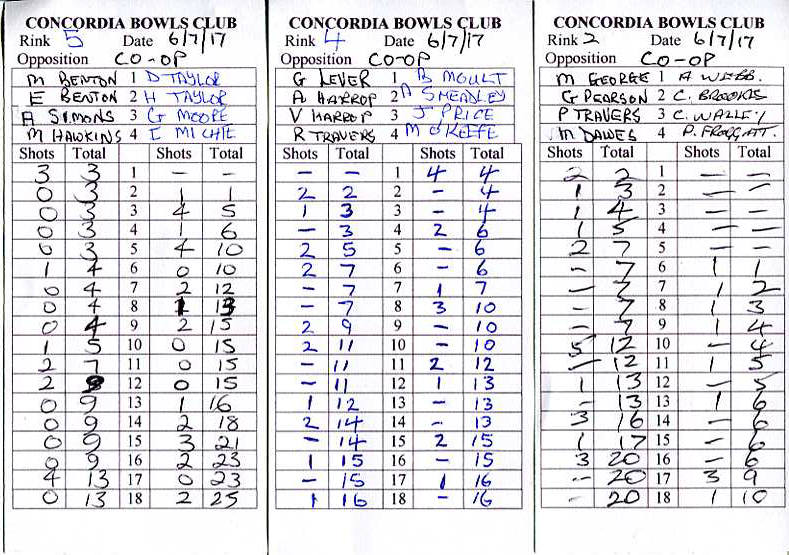 CONCORDIA BOWLS CLUB
Rink 5 Date 6/7/17
Opposition CO-OP
M BENTON 1 D TAYLOR
E BENTON 2 H TAYLOR
A SIMONS 3 G MOORE
M HAWKINS 4 E MICHIE
Shots Total Shots Total
3 3 1 – –
0 3 2 1 1
0 3 3 4 5
0 3 4 1 6
0 3 5 4 10
1 4 6 0 10
0 4 7 2 12
0 4 8 1 13
0 4 9 2 15
1 5 10 0 15
2 7 11 0 15
2 9 12 0 15
0 9 13 1 16
0 9 14 2 18
0 9 15 3 21
0 9 16 2 23
4 13 17 0 23
0 13 18 2 25
CONCORDIA BOWLS CLUB
Rink 4 Date 6/7/17
Opposition CO-OP
G LEVER 1 B MOULT
A HARROP 2 A SMEADLEY
V HARROP 3 J PRICE
R TRAVERS 4 M O'KEEFE
Shots Total Shots Total
– – 1 4 4
2 2 2 – 4
1 3 3 – 4
– 3 4 2 6
2 5 5 – 6
2 7 6 – 6
– 7 7 1 7
– 7 8 3 10
2 9 9 – 10
2 11 10 – 10
– 11 11 2 12
– 11 12 1 13
1 12 13 – 13
2 14 14 – 13
– 14 15 2 15
1 15 16 – 15
– 15 17 1 16
1 16 18 – 16
CONCORDIA BOWLS CLUB
Rink 2 Date 6/7/17
Opposition CO-OP
M GEORGE 1 A WEBB.
G PEARSON 2 C. BROOKS
P TRAVERS 3 C. WALLEY
M DAWES 4 P. FROGGATT.
Shots Total Shots Total
2 2 1 – –
1 3 2 – –
1 4 3 – –
1 5 4 – –
2 7 5 – –
– 7 6 1 1
– 7 7 1 2
– 7 8 1 3
– 7 9 1 4
5 12 10 – 4
– 12 11 1 5
1 13 12 – 5
– 13 13 1 6
3 16 14 – 6
1 17 15 – 6
3 20 16 – 6
– 20 17 3 9
– 20 18 1 10